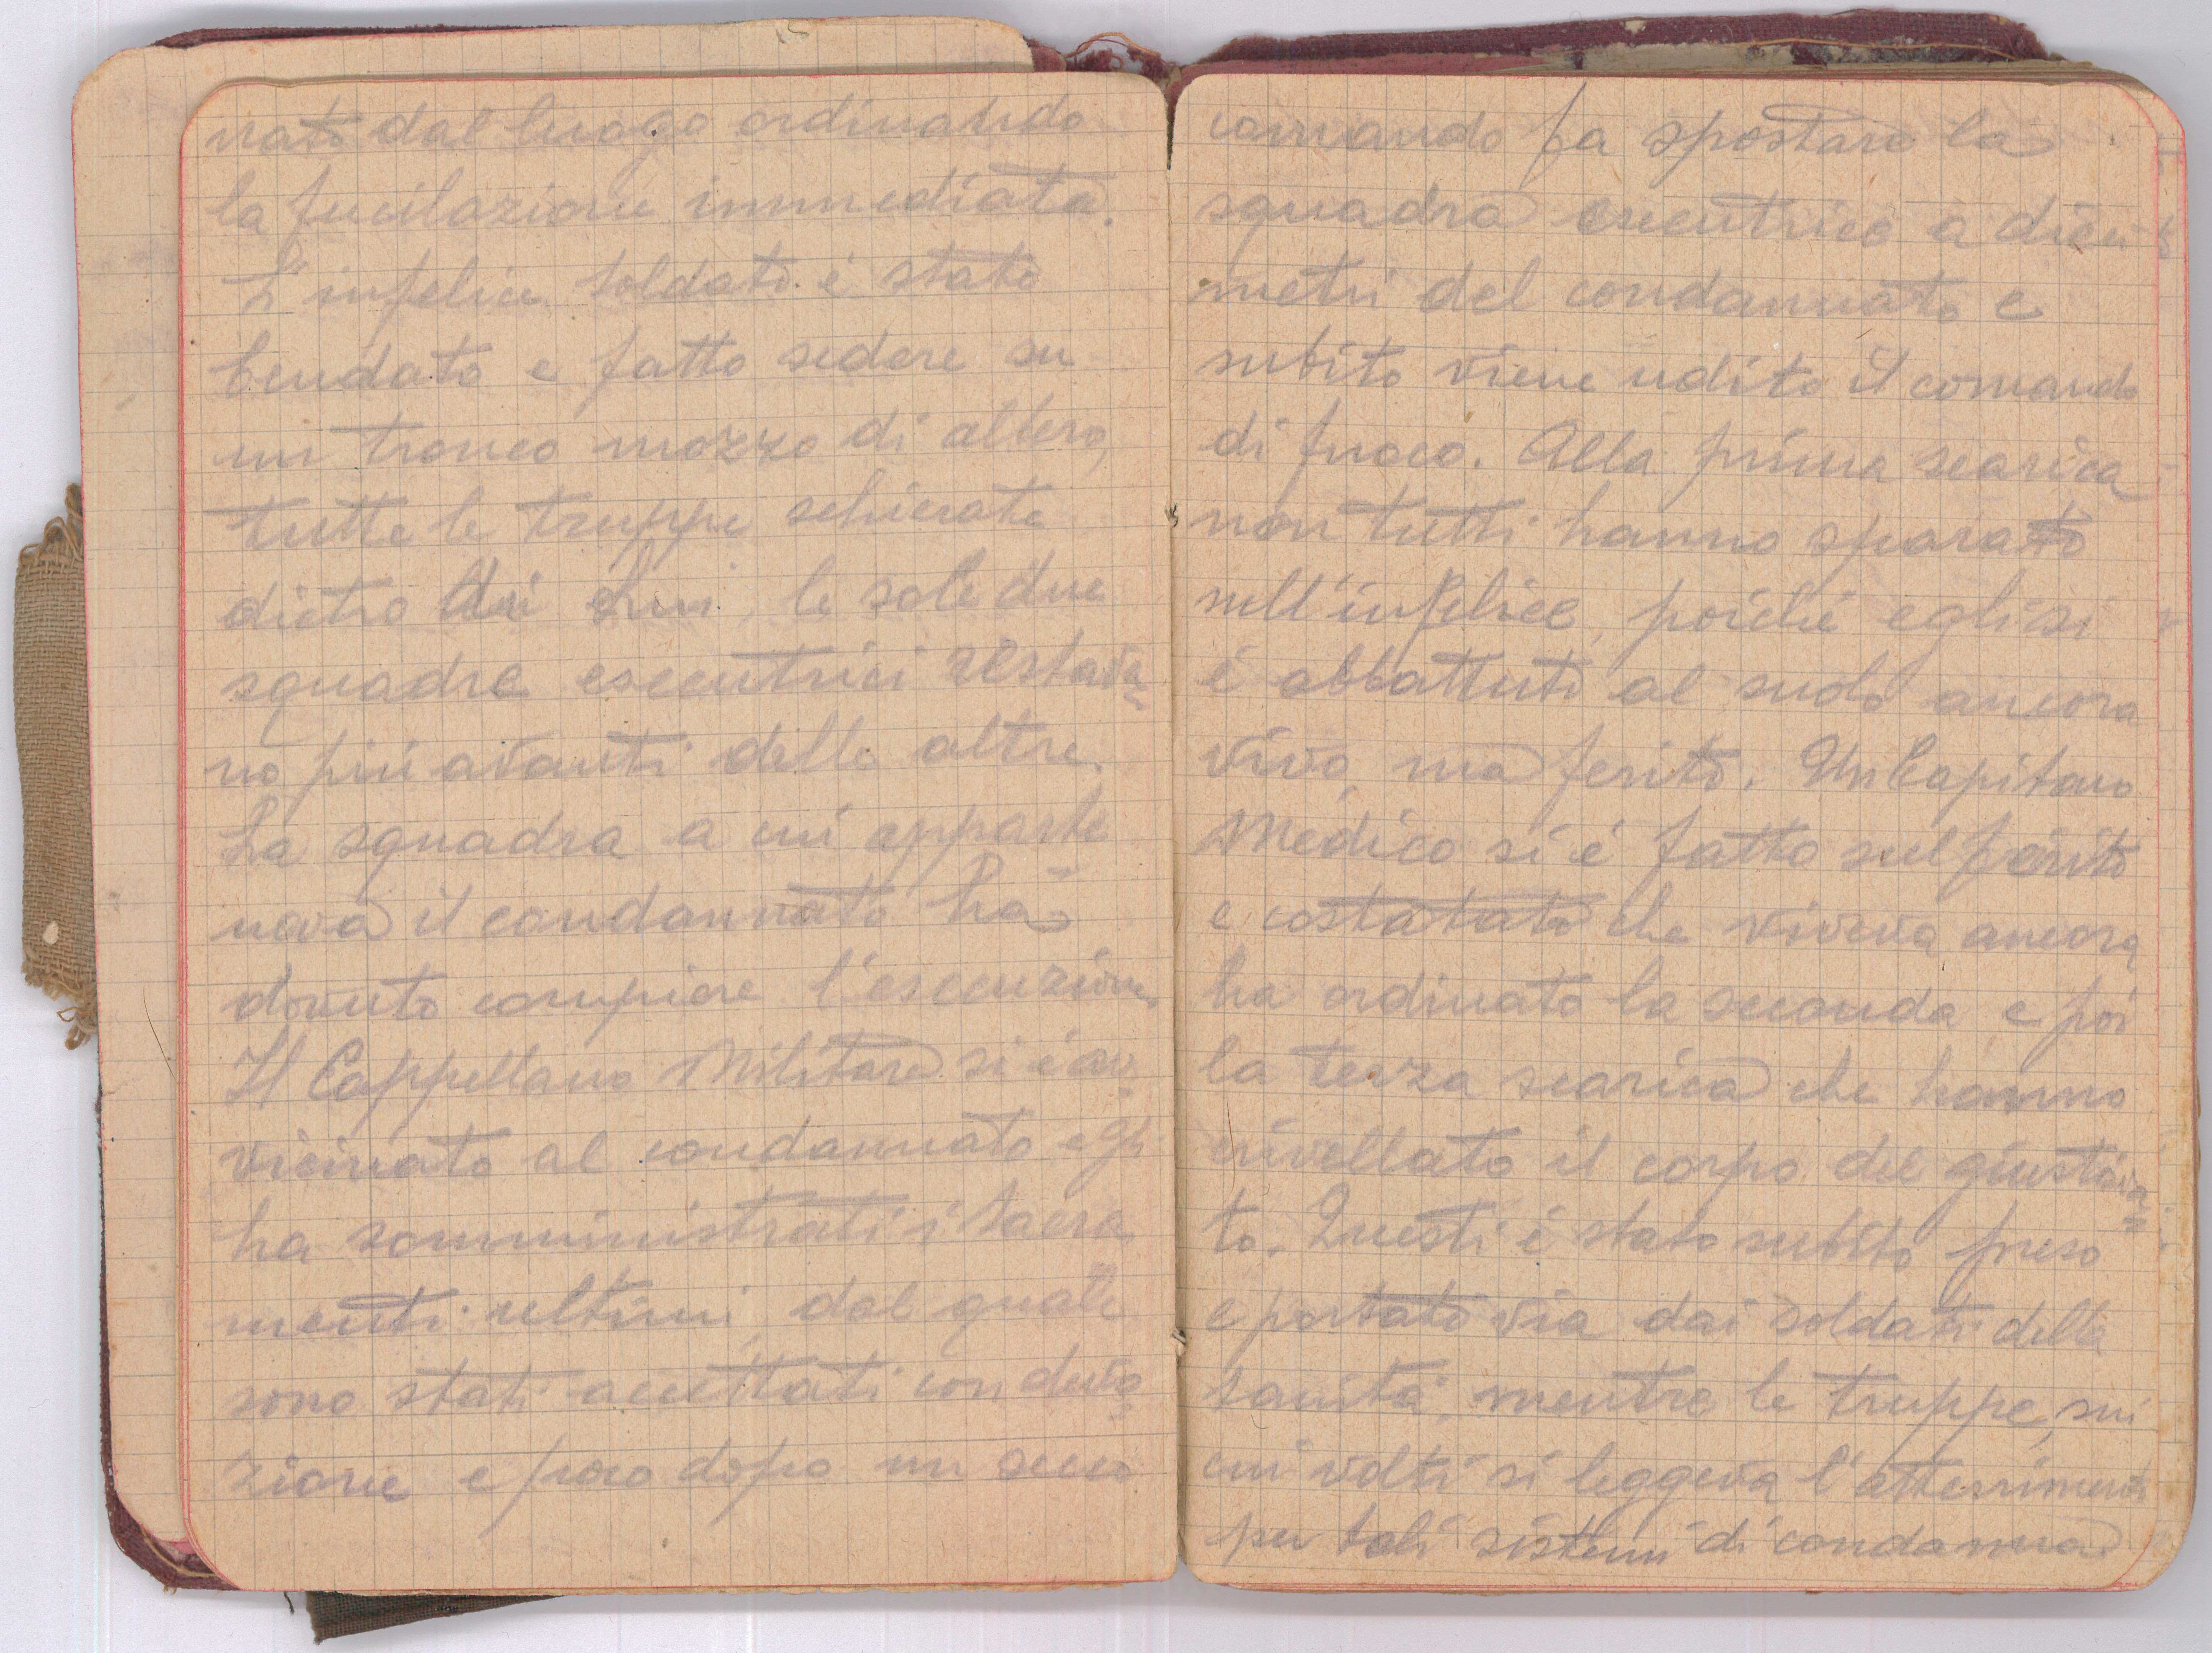 nato dal luogo ordinando
la fucilazione immediata.
L'infelice soldato é stato
bendato e fatto sedere su
un tronco mozzo di albero,
tutte le truppe schierate
dietro di Lui, le sole due
squadre esecutrici restava=
no piú avanti delle altre.
La squadra a cui apparte
neva il condannato ha
dovuto compiere l'esecuzione.
Il Cappellano Militare si é av=
vicinato al condannato e gli
ha somministrati i Sacra
menti ultimi, dal quale
sono stati accettati con devo=
zione e poco dopo un secco
comando fa spostare la
squadra esecutrice a dieci
metri del condannato e
subito viene udito il comando
di fuoco. Alla prima scarica
non tutti hanno sparato
sull'infelice, poiché egli si
é abbattuto al suolo ancora
vivo, ma ferito. Un Capitano
Medico si é fatto sul ferito
e costatato che viveva ancora
ha ordinato la seconda e poi
la terza scarica che hanno
crivellato il corpo del giustizia=
to. Questi é stato subito preso
e portato via dai soldati della
Sanitá, mentre le truppe, sui
cui volti si leggeva l'atterrimento
per tali sistemi di condanna